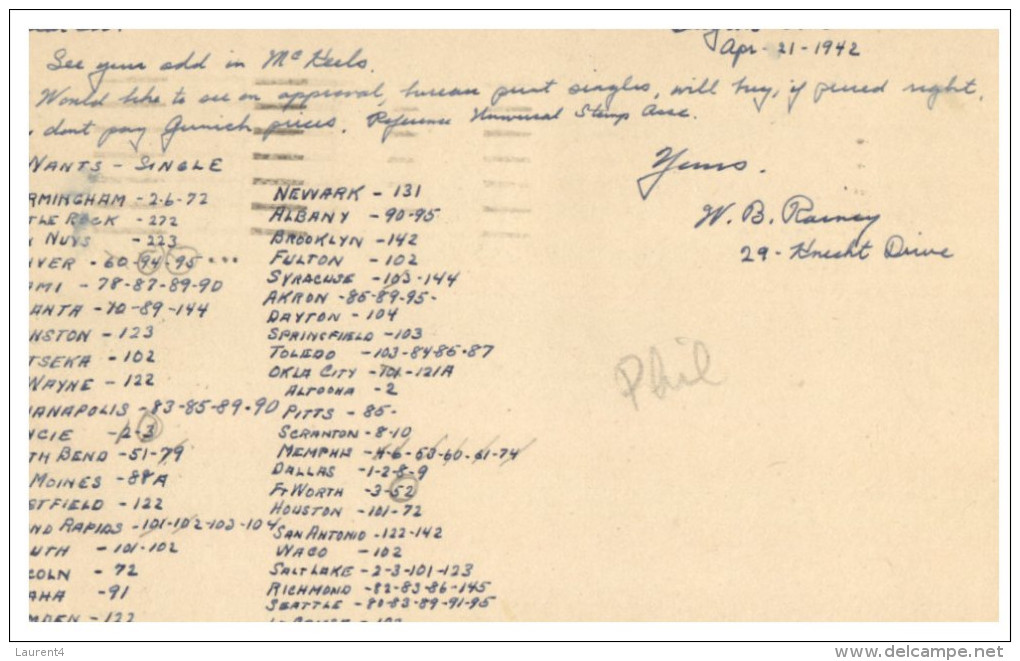 Apr-21-1942
See your add in McKeels.
Would like to see on approval, bureau print singles, will buy, if priced right.
dont pay Gimich prices. Reference Universal Stamp Assc.
Yours.
W. B. Rainey
29-Knecht Drive
WANTS - SINGLE
RMINGHAM - 2-6-72
TLE ROCK - 272
NUYS - 223
NVER - 60-94-95-
AMI - 78-87-89-90
ANTA - 70-89-144
NSTON - 123
TSEKA - 102
WAYNE - 122
IANAPOLIS - 83-85-89-90
NCIE - 2-3
TH BEND - 51-79
MOINES - 88A
STFIELD - 122
ND RAPIDS - 101-102-103-104
UTH - 101-102
COLN - 72
AHA - 91
MDEN - 122
NEWARK - 131
ALBANY - 90-95
BROOKLYN - 142
FULTON - 102
SYRACUSE - 103-144
AKRON - 85-89-95-
DAYTON - 104
SPRINGFIELD - 103
TOLEDO - 103-84-85-87
OKLA CITY - 701-121A
ALTOONA - 2
PITTS - 85-
SCRANTON - 8-10
MEMPHIS - 4-6-53-60-61-74
DALLAS - 1-2-8-9
FT WORTH - 3-52
HOUSTON - 101-72
SAN ANTONIO - 122-142
WACO - 102
SALT LAKE - 2-3-101-123
RICHMOND - 82-83-86-145
SEATTLE - 80-83-89-91-95
Phil
Laurent4
www.delcampe.net